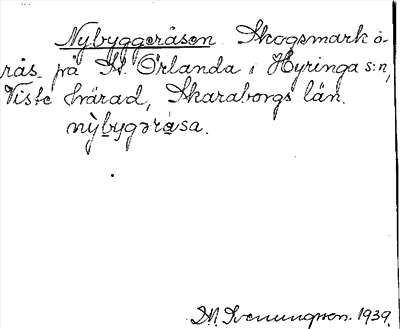 Nybyggeråsen Skogsmark o-
rås på St. Örlanda i Hyringa s:n,
Viste härad, Skaraborgs län.
nỳbygəråsa.
M. Svenungsson. 1939.